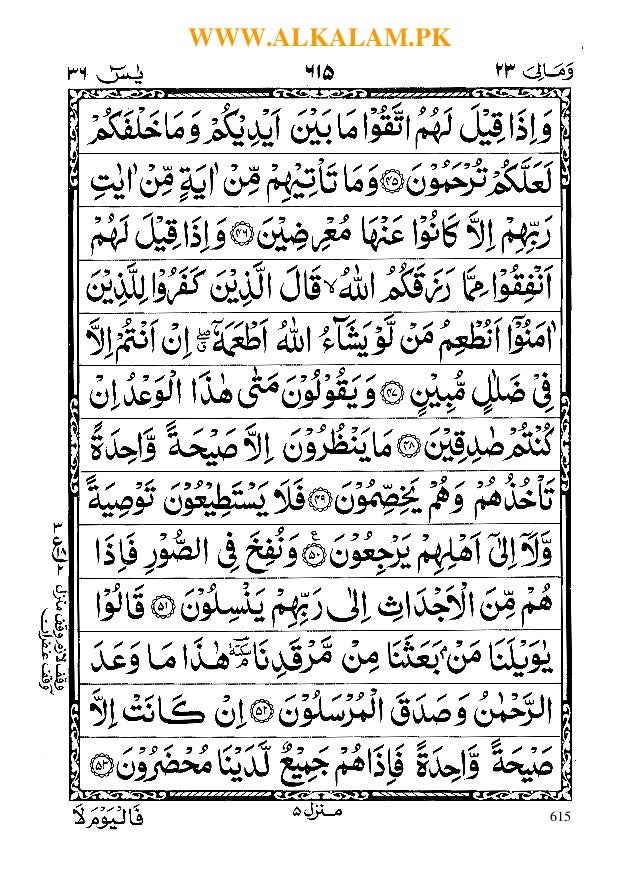 WWW.ALKALAM.PK
وَمَالِیَ ۲۳
۶۱۵
یٰسٓ ۳۶
وَاِذَا قِیْلَ لَهُمُ اتَّقُوْا مَا بَیْنَ اَیْدِیْكُمْ وَمَا خَلْفَكُمْ
لَعَلَّكُمْ تُرْحَمُوْنَ ﴿۴۵﴾ وَمَا تَاْتِیْهِمْ مِّنْ اٰیَةٍ مِّنْ اٰیٰتِ
رَبِّهِمْ اِلَّا كَانُوْا عَنْهَا مُعْرِضِیْنَ ﴿۴۶﴾ وَاِذَا قِیْلَ لَهُمْ
اَنْفِقُوْا مِمَّا رَزَقَكُمُ اللّٰهُ ۙ قَالَ الَّذِیْنَ كَفَرُوْا لِلَّذِیْنَ
اٰمَنُوْۤا اَنُطْعِمُ مَنْ لَّوْ یَشَآءُ اللّٰهُ اَطْعَمَهٗۤ ۖ اِنْ اَنْتُمْ اِلَّا
فِیْ ضَلٰلٍ مُّبِیْنٍ ﴿۴۷﴾ وَیَقُوْلُوْنَ مَتٰی هٰذَا الْوَعْدُ اِنْ
كُنْتُمْ صٰدِقِیْنَ ﴿۴۸﴾ مَا یَنْظُرُوْنَ اِلَّا صَیْحَةً وَّاحِدَةً
تَاْخُذُهُمْ وَهُمْ یَخِصِّمُوْنَ ﴿۴۹﴾ فَلَا یَسْتَطِیْعُوْنَ تَوْصِیَةً
وَّلَاۤ اِلٰۤی اَهْلِهِمْ یَرْجِعُوْنَ ﴿۵۰﴾ ع وَنُفِخَ فِی الصُّوْرِ فَاِذَا
هُمْ مِّنَ الْاَجْدَاثِ اِلٰی رَبِّهِمْ یَنْسِلُوْنَ ﴿۵۱﴾ قَالُوْا
یٰوَیْلَنَا مَنْۢ بَعَثَنَا مِنْ مَّرْقَدِنَا ۘ هٰذَا مَا وَعَدَ
الرَّحْمٰنُ وَصَدَقَ الْمُرْسَلُوْنَ ﴿۵۲﴾ اِنْ كَانَتْ اِلَّا
صَیْحَةً وَّاحِدَةً فَاِذَا هُمْ جَمِیْعٌ لَّدَیْنَا مُحْضَرُوْنَ ﴿۵۳﴾
وقف لازم وقف منزل
وقف غفران
منزل ۵
فَالْیَوْمَ لَا
615